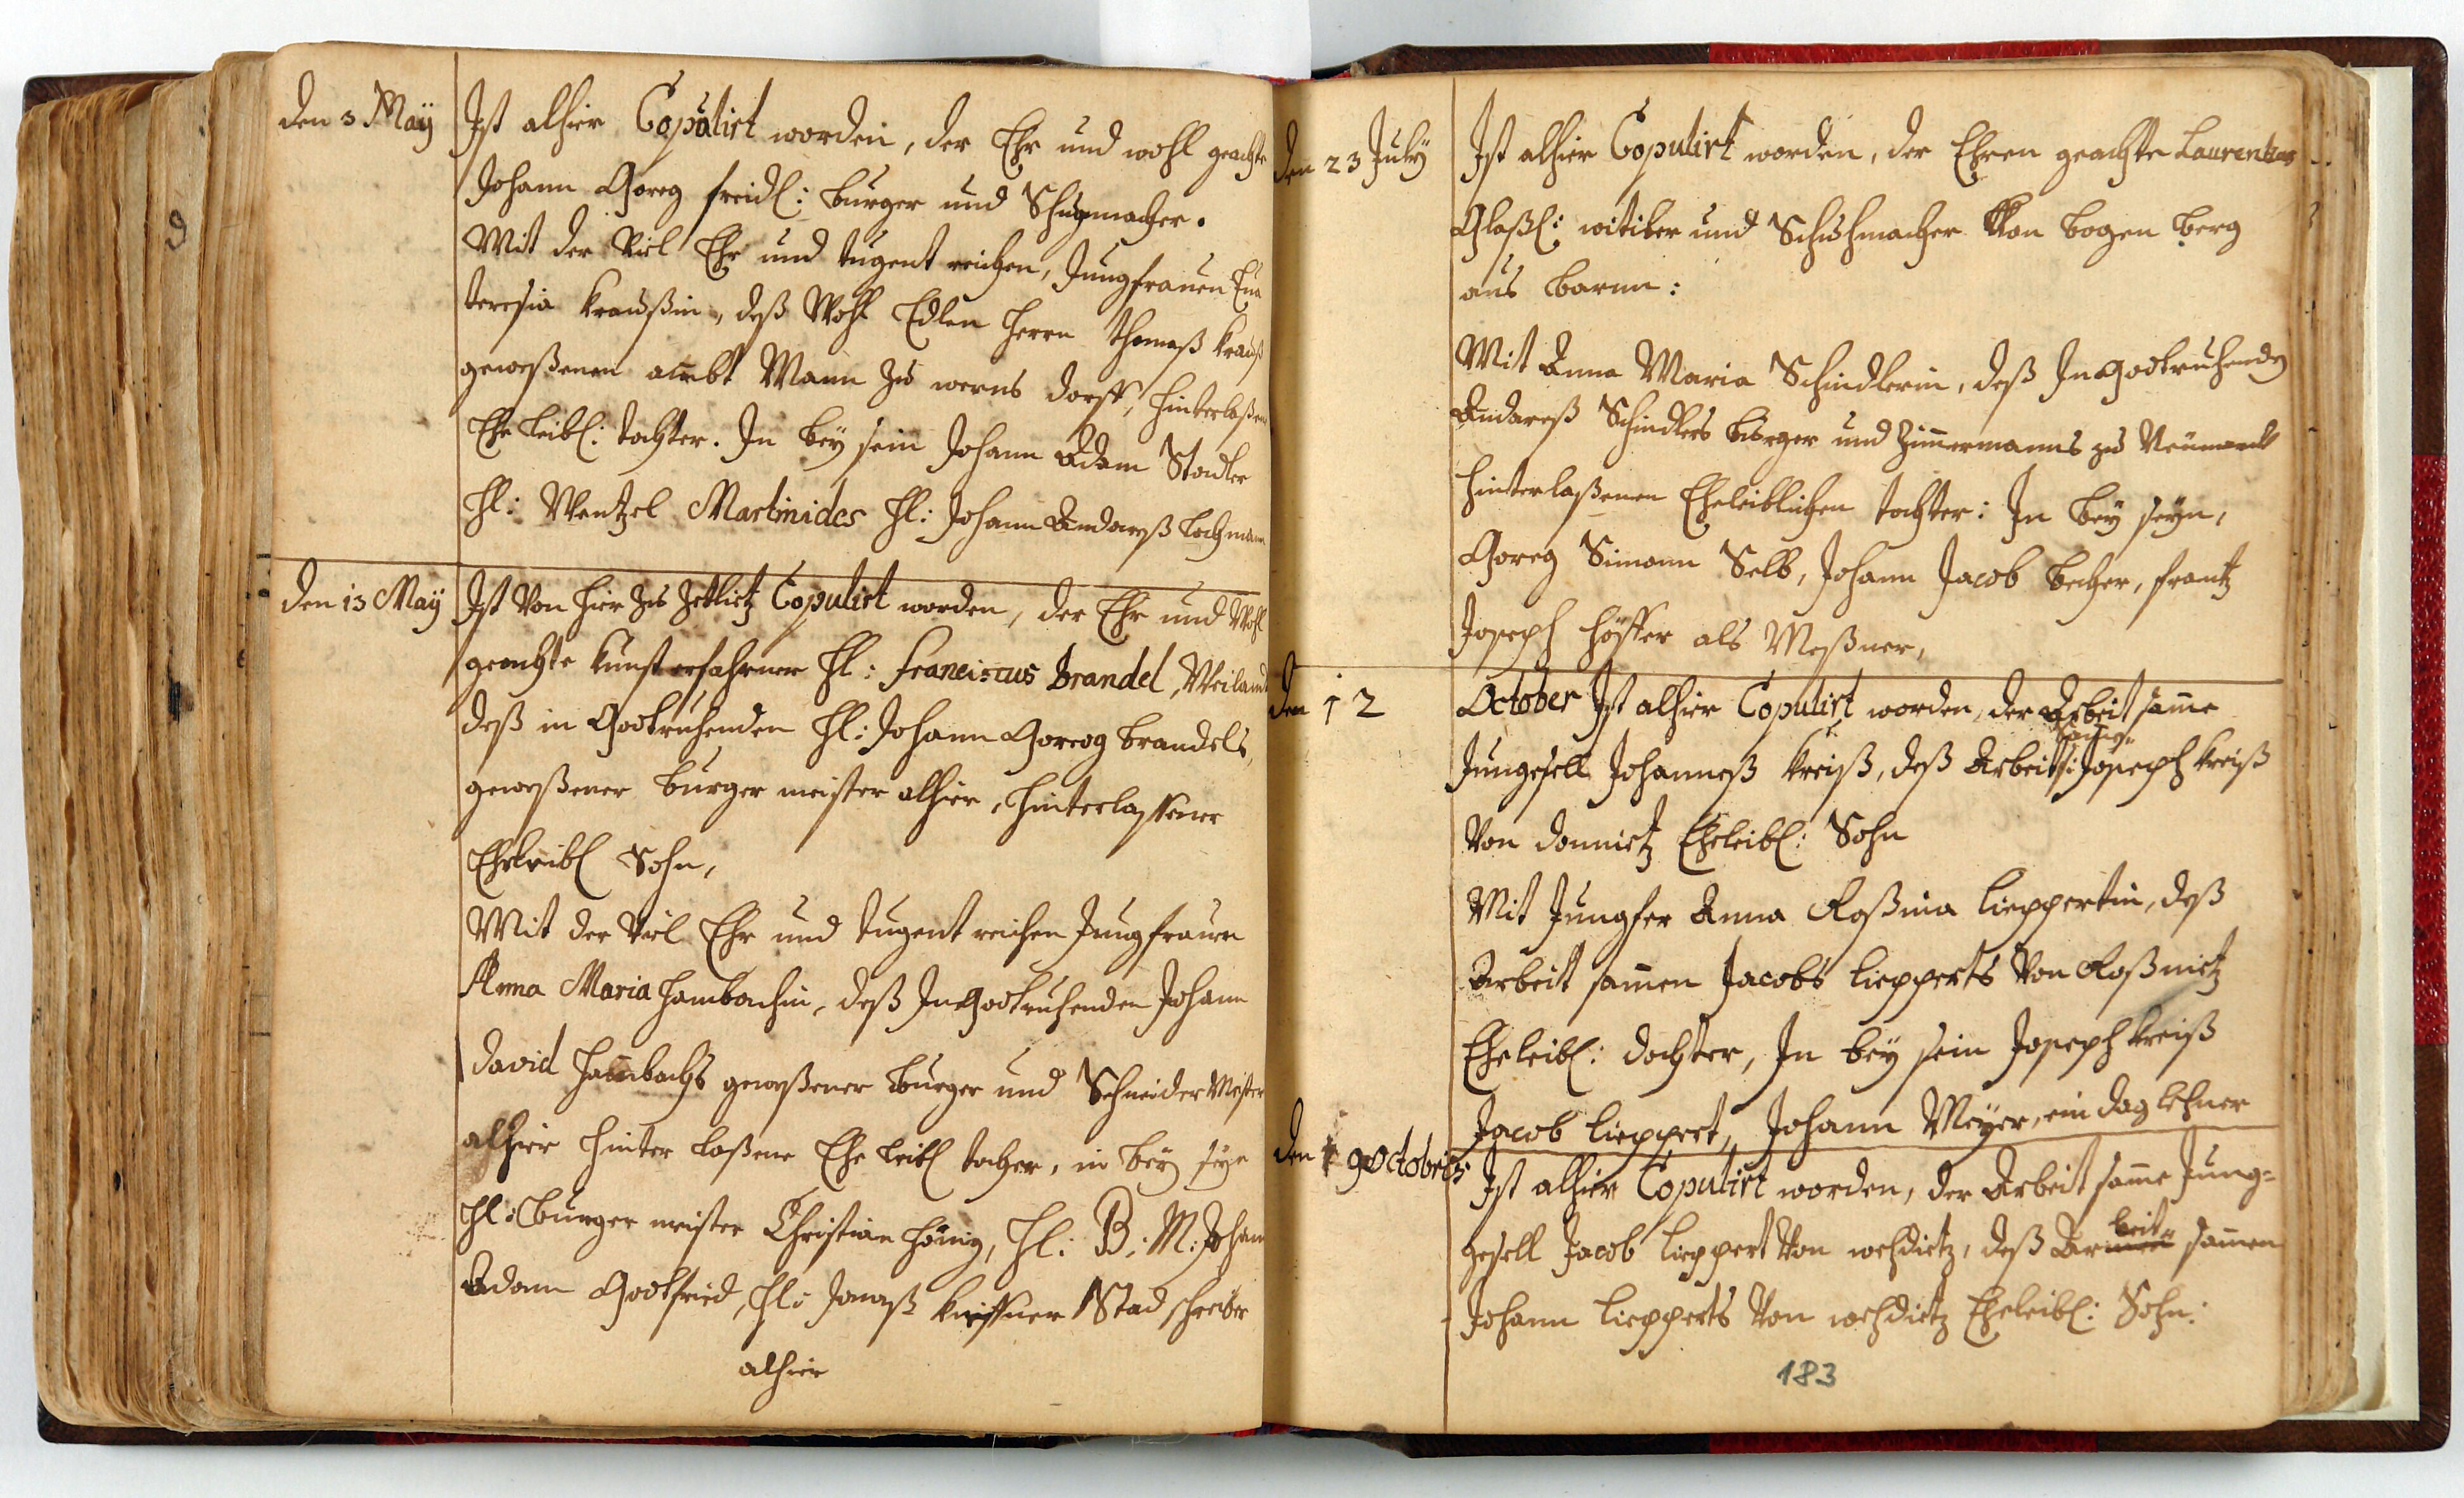 den 3 Maÿ
Ist alhier Copulirt worden, der Ehr und wohl geachte
Johann Goreg freidl: burger und Schugmacher.
Mit der Viel Ehr und tugent reichen, Jungfrauen Eva
teresia kraußin, deß Wohl Edlen herrn thomaß krauß
geweßenen ambt Mann zu werns dorff, hinterlaßene
Ehe leibl: tochter. In beÿ sein Johann Adam Stadler
Hl: Wentzel Martinides Hl: Johann Andareß Lochmann
den 13 Maÿ
Ist Von hier zu Zetlietz Copulirt worden, der Ehr und Wohl
geachte kunst erfahrner Hl: Franciscus Brandel, Weiland
deß in Gottruhenden Hl: Johann Goreog brandels,
geweßener burger meister alhier, hinterlassener
Eheleibl Sohn,
Mit der Viel Ehr und tugent reichen Jungfrauen
Anna Maria hambachin, deß In Gottruhenden Johann
David hambachs geweßener burger und Schneider Meister
alhier hinter laßene Ehe leibl tochter, in beÿ sÿe
Hl: burger meister Christian hönig, Hl: B: M: Johan
Adam Gottfried, Hl: Jonaß Stad schreiber
alhier
den 23 July
Ist alhier Copulirt worden, der Ehren geachte Laurentzus
Glaßl: witiber und Schuhmacher Von bogen berg
aus barnn:
Mit Anna Maria Schindlerin, deß In Gottruhenden
Andareß Schindlers burger und Zimmermanns zu Neumarck
hinterlaßenen Eheleiblichen tochter: In beÿ seÿn,
Goreg Simonn Selb, Johann Jacob becher, frantz
Joseph höffer als Meßner,
den 12
October Ist alhier Copulirt worden, der Arbeit same
Jungesell Johanneß kreiß, deß Arbeits: Joseph kreiß
Von donnietz Eheleibl: Sohn
Mit Jungfer Anna Roßina lieppertin, deß
Arbeit samen Jacobs liepperts Von Roßnietz
Eheleibl: dochter, In beÿ sein Joseph kreiß
Jacob lieppert, Johann Meÿer, ein dag lehner
den 19 Octobris
Ist alhier Copulirt worden, der Arbeit same Jung-
gesell Jacob lieppert Von wehdietz, deß Arbeit samen
Johann liepperts Von wehdietz Eheleibl: Sohn:
183